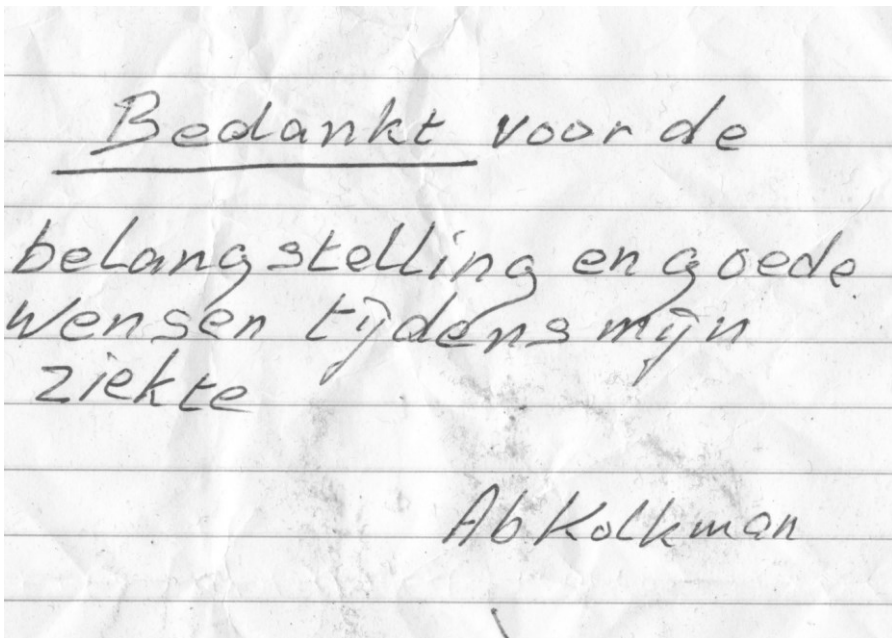 Bedankt voor de
belangstelling en goede
wensen tijdens mijn
ziekte
Ab Kolkman